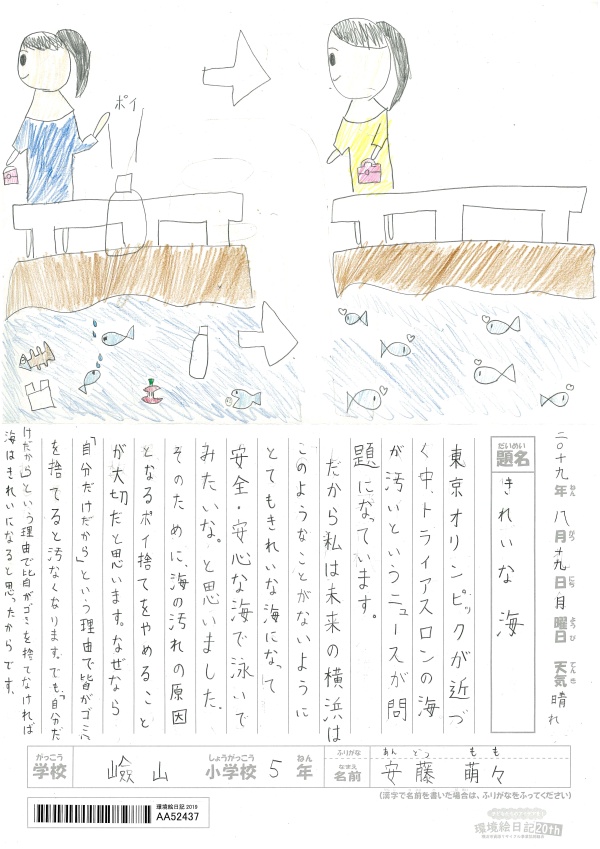 ポイ
二〇十九年 八月 十九日 月曜日 天気 晴れ
ねん がつ にち ようび てんき
だいめい
題名 きれいな海
東京オリンピックが近づ
く中、トライアスロンの海
が汚いというニュースが問
題になっています。
だから私は未来の横浜は
このようなことがないように
とてもきれいな海になって
安全・安心な海で泳いで
みたいな。と思いました。
そのために、海の汚れの原因
となるポイ捨てをやめること
が大切だと思います。なぜなら
「自分だけだから」という理由で皆がゴミ
を捨てると汚なくなります。でも「自分だ
けだから」という理由で皆がゴミを捨てなければ
海はきれいになると思ったからです。
がっこう しょうがっこう ねん
学校 嶮山 小学校 5年
ふりがな あんどう もも
なまえ
名前 安藤 萌々
(漢字で名前を書いた場合は、ふりがなをふってください)
環境絵日記 2019
AA52437
環境絵日記 20th